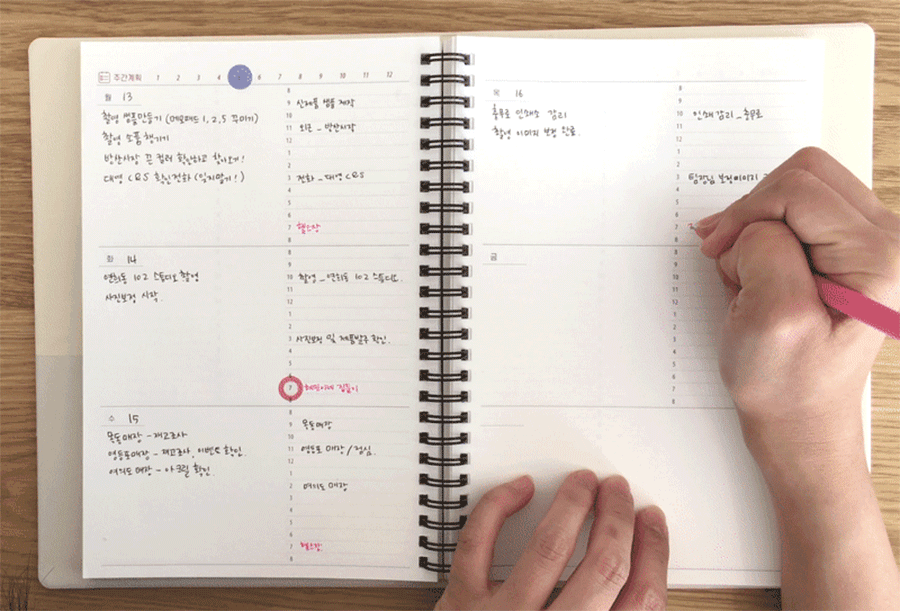 주간계획 1 2 3 4 5 6 7 8 9 10 11 12
월 13
촬영 샘플만들기 (메모패드 1, 2, 5 꾸미기)
촬영 소품 챙기기
방산시장 끈 컬러 확인하고 찾아오기!
대영 CBS 확인전화 (잊지말기!)
8
9 신제품 샘플 제작
10
11 외근 _ 방산시장
12
1
2
3 전화 _ 대영 CBS
4
5
6
7 헬스장
8
화 14
연희동 102 스튜디오 촬영
사진보정 시작.
8
9
10 촬영 _ 연희동 102 스튜디오.
11
12
1
2
3 사진보정 및 제품발주 확인.
4
5
7 집들이
8
수 15
목동매장 - 재고조사
영등포매장 - 재고조사, 이벤트 확인.
여의도 매장 - 아크릴 확인.
8
9 목동매장
10
11 영등포 매장 / 점심.
12
1
2 여의도 매장
3
4
5
6
7 헬스장.
8
목 16
충무로 인쇄소 감리
촬영 이미지 보정 완료.
8
9
10 인쇄감리 _ 충무로
11
12
1
2
3 팀장님 보정이미지
4
5
6
7
8
금
8
9
10
11
12
1
2
3
4
5
6
7
8